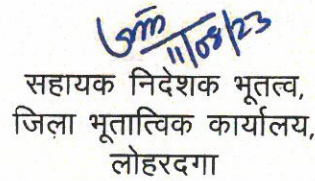 11/08/23
सहायक निदेशक भूतत्व,
जिला भूतात्विक कार्यालय,
लोहरदगा